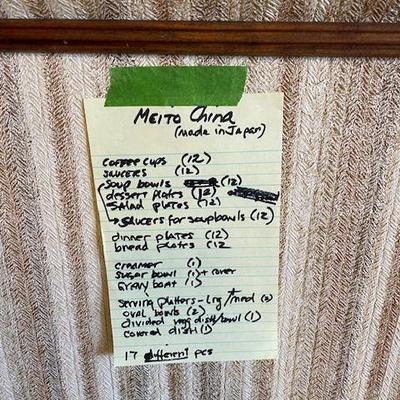 MEITO China
(made in Japan)
COFFEE CUPS (12)
SAUCERS (12)
SOUP bowls (12)
dessert plates (12)
SALAD plates (12)
→ SAUCERS for soup bowls (12)
dinner plates (12)
bread plates (12
creamer (1)
sugar bowl (1) + cover
GRAVY boat (1)
Serving platters - lrg/med (2)
oval bowls (2)
divided veg dish/bowl (1)
covered dish (1)
17 different pcs